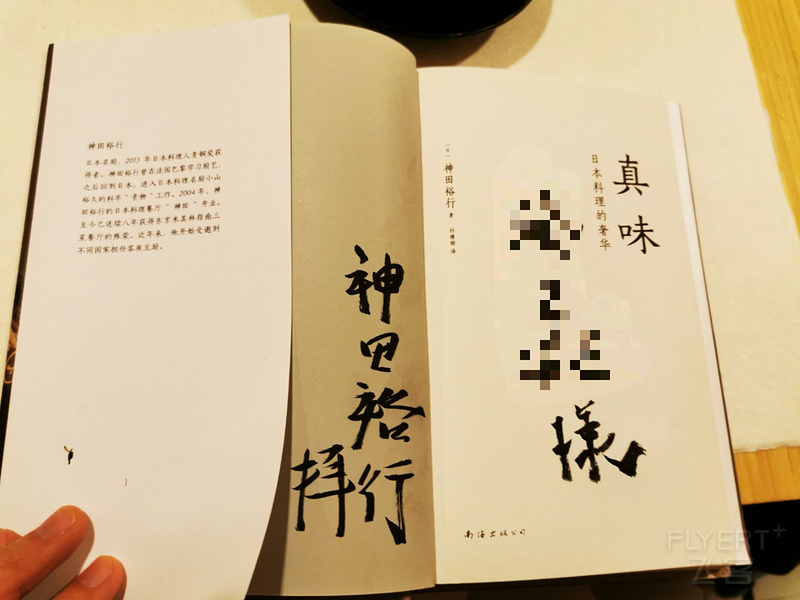 神田裕行
日本名厨，2013 年日本料理人青铜奖获
得者。神田裕行曾在法国巴黎学习厨艺，
之后回到日本，进入日本料理名厨小山
裕久的料亭“青柳”工作。2004 年，神
田裕行的日本料理餐厅“神田”开业。
至今已连续八年获得东京米其林指南三
星餐厅的殊荣。近年来，他开始受邀到
不同国家担任客座主厨。
神田裕行
拝
真味
日本料理的奢华
(日) 神田裕行 著
様
南海出版公司
FLYERT+
飞客